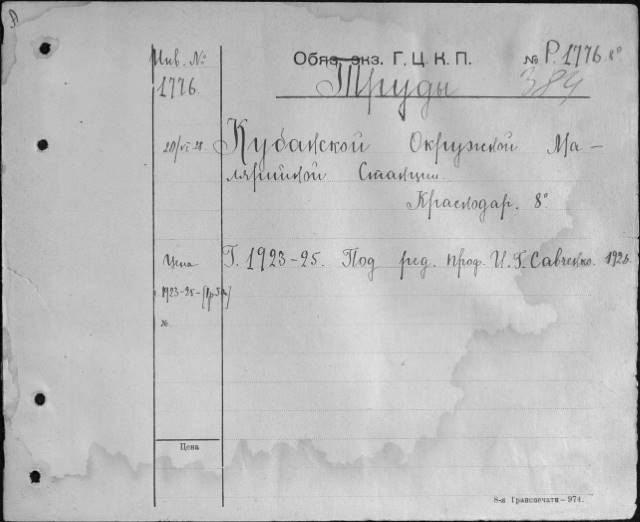 Инв. №
1776.
Обяз. экз. Г. Ц. К. П.
№ Р. 1776 8°
384
Труды
20/VI 28
Кубанской Окружной Ма-
лярийной Станции.
Краснодар. 8°
Цена
Г. 1923-25. Под ред. проф. И. Г. Савченко. 1926.
1923-25-
№
Цена
8-я Транспечати—974.